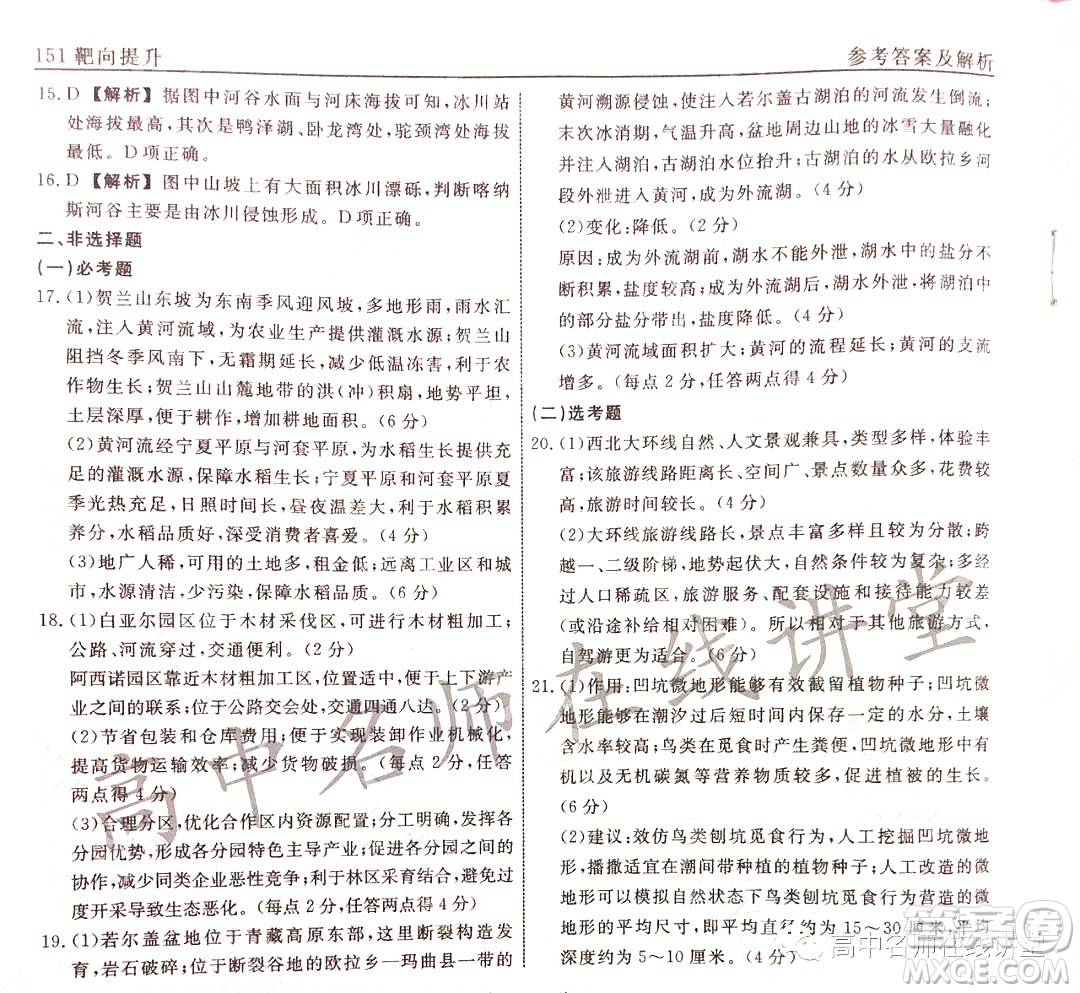 151靶向提升
参考答案及解析
15. D 【解析】据图中河谷水面与河床海拔可知,冰川站
处海拔最高,其次是鸭泽湖、卧龙湾处,驼颈湾处海拔
最低。D项正确。
16. D 【解析】图中山坡上有大面积冰川漂砾,判断喀纳
斯河谷主要是由冰川侵蚀形成。D项正确。
二、非选择题
(一)必考题
17. (1)贺兰山东坡为东南季风迎风坡,多地形雨,雨水汇
流,注入黄河流域,为农业生产提供灌溉水源;贺兰山
阻挡冬季风南下,无霜期延长,减少低温冻害,利于农
作物生长;贺兰山山麓地带的洪(冲)积扇,地势平坦,
土层深厚,便于耕作,增加耕地面积。(6分)
(2)黄河流经宁夏平原与河套平原,为水稻生长提供充
足的灌溉水源,保障水稻生长;宁夏平原和河套平原夏
季光热充足,日照时间长,昼夜温差大,利于水稻积累
养分,水稻品质好,深受消费者喜爱。(4分)
(3)地广人稀,可用的土地多,租金低;远离工业区和城
市,水源清洁,少污染,保障水稻品质。(6分)
18. (1)白亚尔园区位于木材采伐区,可进行木材粗加工;
公路、河流穿过,交通便利。(2分)
阿西诺园区靠近木材粗加工区,位置适中,便于上下游产
业之间的联系;位于公路交会处,交通四通八达。(2分)
(2)节省包装和仓库费用;便于实现装卸作业机械化,
提高货物运输效率;减少货物破损。(每点2分,任答
两点得4分)
(3)合理分区,优化合作区内资源配置;分工明确,发挥各
分园优势,形成各分园特色主导产业;促进各分园之间的
协作,减少同类企业恶性竞争;利于林区采育结合,避免过
度开采导致生态恶化。(每点2分,任答两点得4分)
19. (1)若尔盖盆地位于青藏高原东部,这里断裂构造发
育,岩石破碎;位于断裂谷地的欧拉乡—玛曲县一带的
黄河溯源侵蚀,切穿了若尔盖古湖泊的河流发生倒流;
末次冰消期,气温升高,盆地周边山地的冰雪大量融化
并注入湖泊,古湖泊水位抬升;古湖泊的水从欧拉乡河
段外泄进入黄河,成为外流湖。(4分)
(2)变化:降低。(2分)
原因:成为外流湖前,湖水不能外泄,湖水中的盐分不
断积累,盐度较高;成为外流湖后,湖水外泄,将湖水中
的部分盐分带出,盐度降低。(4分)
(3)黄河流域面积扩大;黄河的流程延长;黄河的支流
增多。(每点2分,任答两点得4分)
(二)选考题
20. (1)西北大环线自然、人文景观兼具,类型多样,体验丰
富;该旅游线路距离长、空间广、景点数量众多,花费较
高,旅游时间较长。(4分)
(2)大环线旅游线路长,景点丰富多样且较为分散;跨
越一、二级阶梯,地势起伏大,自然条件较为复杂;多经
过人口稀疏区,旅游服务、配套设施和物资供应有限
(或沿途补给相对困难)。所以相对于其他旅游方式,
自驾游更为适合。(6分)
21. (1)作用:凹坑微地形能够有效截留植物种子;凹坑微
地形能够在潮汐过后短时间内保存一定的水分,土壤
含水率较高;鸟类在觅食时产生粪便,凹坑微地形有机
与无机碳氮等营养物质较多,可促进植被的生长。
(6分)
(2)建议:效仿鸟类刨坑觅食行为,人工挖掘凹坑微地
形,播撒适宜在潮间带种植的植物种子;人工改造的微
地形可以模拟自然状态下鸟类刨坑觅食行为营造的微
地形的平均尺寸,即平均直径约为15～30厘米,平均
深度约为5～10厘米。(4分)
高中名师在线讲堂
高中名师在线讲堂
答案圈
MXQE.COM